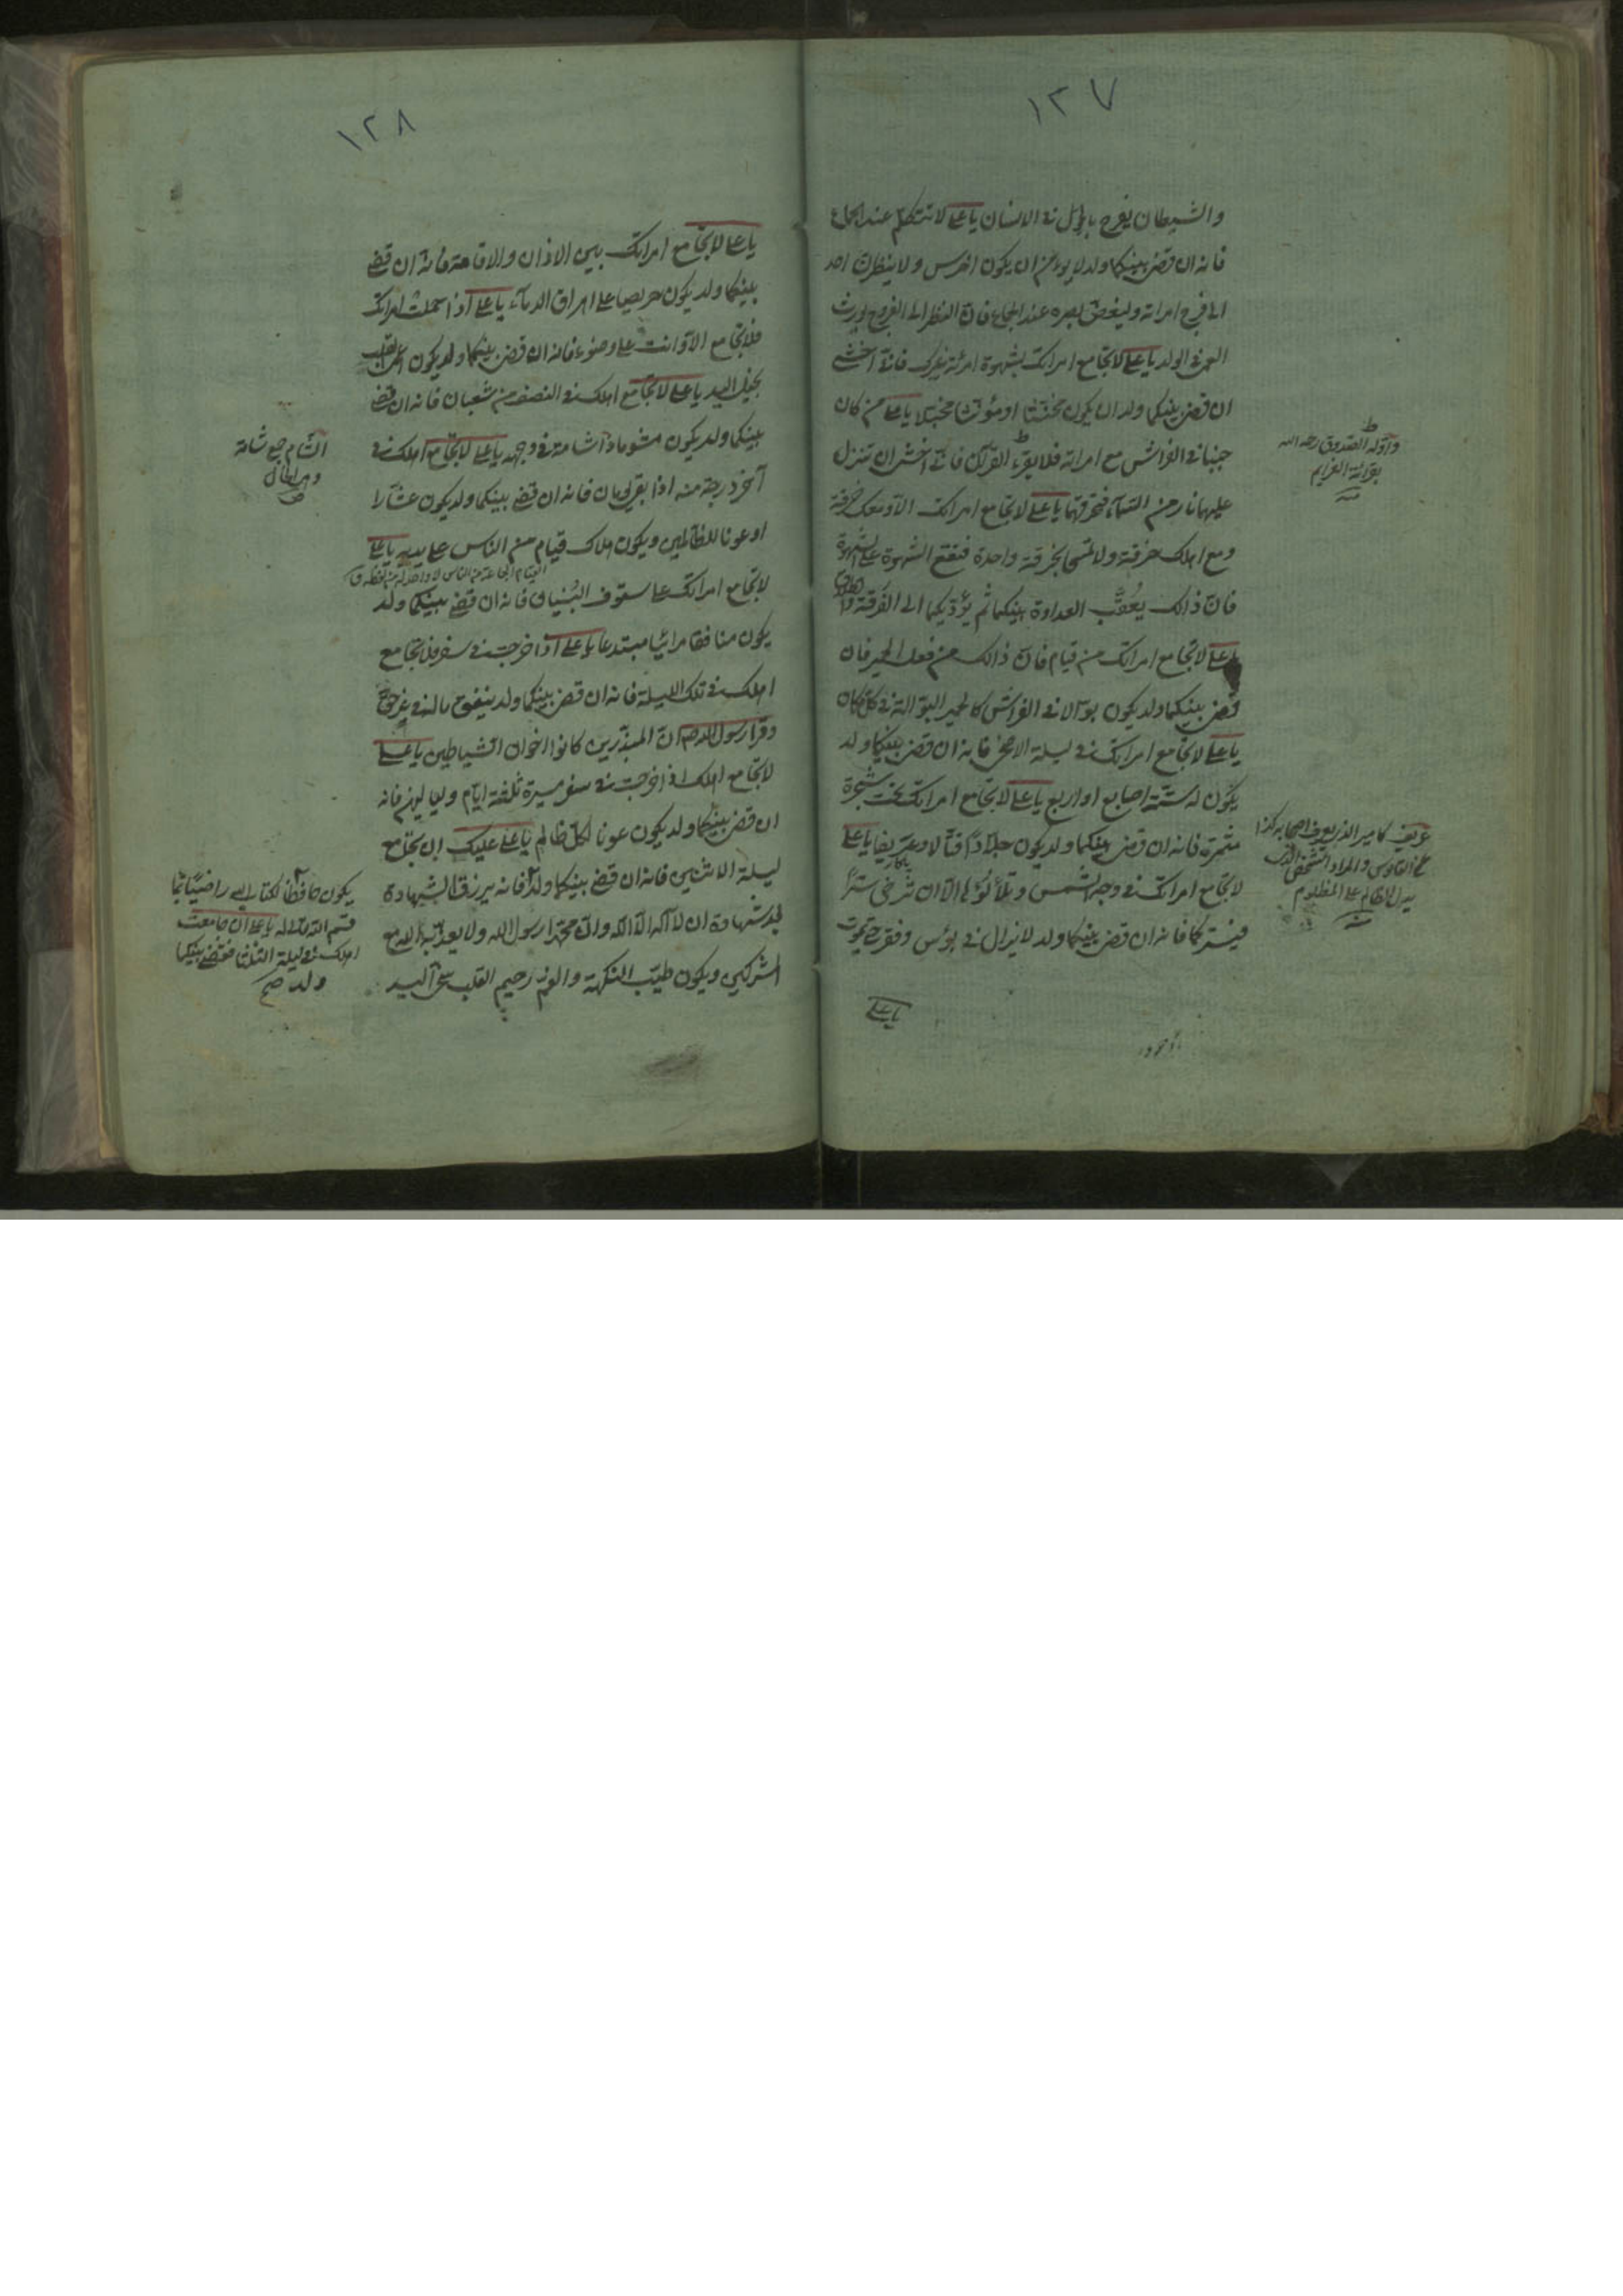 ١٢٧
والشيطان يفرح بالحول في الانسان يا علي لا تتكلم عند الجماع
فانه ان قضي بينكما ولد لا يؤمن ان يكون اخرس ولا ينظرن احد
الى فرج امراته وليغض بصره عند الجماع فان النظر الى الفروج يورث
العمى في الولد يا علي لا تجامع امراتك بشهوة امرئة غيرك فاني اخشى
ان قضي بينكما ولد ان يكون مخنثا او مؤنثا مخبلا يا علي من كان
جنبا في الفراش مع امراته فلا يقرء القرآن فاني اخشى ان تنزل
عليهما نار من السماء فتحرقهما يا علي لا تجامع امراتك الا ومعك خرقة
ومع اهلك خرقة ولا تمسحا بخرقة واحدة فتقع الشهوة على الشهوة
فان ذالك يعقب العداوة بينكما ثم يؤديكما الى الفرقة والطلاق
يا علي لا تجامع امراتك من قيام فان ذالك من فعل الحمير فان
قضي بينكما ولد يكون بوالا في الفراش كالحمير البوالة في كل مكان
يا علي لا تجامع امراتك في ليلة الاضحى فانه ان قضي بينكما ولد
يكون له ستة اصابع او اربع يا علي لا تجامع امراتك تحت شجرة
مثمرة فانه ان قضي بينكما ولد يكون جلادا قتالا وعريفا يا علي
لا تجامع امراتك في وجه الشمس وتلألؤها الا ان ترخي سترا
فيستركما فانه ان قضي بينكما ولد لا يزال في بؤس وفقر حتى يموت
يا علي
واوله الصدوق رحمه الله
بقرائة العزايم
عريف كامير الذي يعرف اصحابه كذا
في القاموس والمراد الشخص الذي
يدل الظالم على المظلوم
١٢٨
يا علي لا تجامع امراتك بين الاذان والاقامة فانه ان قضي
بينكما ولد يكون حريصا على اهراق الدماء يا علي اذا حملت امراتك
فلا تجامع الا وانت على وضوء فانه ان قضي بينكما ولد يكون اعمى القلب
بخيل اليد يا علي لا تجامع اهلك في النصف من شعبان فانه ان قضي
بينكما ولد يكون مشوما ذا شامة في وجهه يا علي لا تجامع اهلك في
آخر درجة منه اذا بقي يومان فانه ان قضي بينكما ولد يكون عشارا
او عونا للظالمين ويكون هلاك قيام من الناس على يديه يا علي
لا تجامع امراتك على سقوف البنيان فانه ان قضي بينكما ولد
يكون منافقا مرائيا مبتدعا يا علي اذا خرجت في سفر فلا تجامع
اهلك في تلك الليلة فانه ان قضي بينكما ولد ينفق ماله في غير حق
وقرا رسول الله ص ان المبذرين كانوا اخوان الشياطين يا علي
لا تجامع اهلك اذا خرجت في سفر مسيرة ثلثة ايام ولياليهن فانه
ان قضي بينكما ولد يكون عونا لكل ظالم يا علي عليك ان تجامع
ليلة الاثنين فانه ان قضي بينكما ولد فانه يرزق الشهادة
بعد شهادة ان لا اله الا الله وان محمدا رسول الله ولا يعذبه الله مع
المشركين ويكون طيب النكهة والفم رحيم القلب سخي اليد
الشام جمع شامة
وهي الخال
يكون حافظا لكتاب الله راضيا بما
قسم الله تعالى له يا علي ان جامعت
اهلك في ليلة الثلثا فقضي بينكما
ولد صح